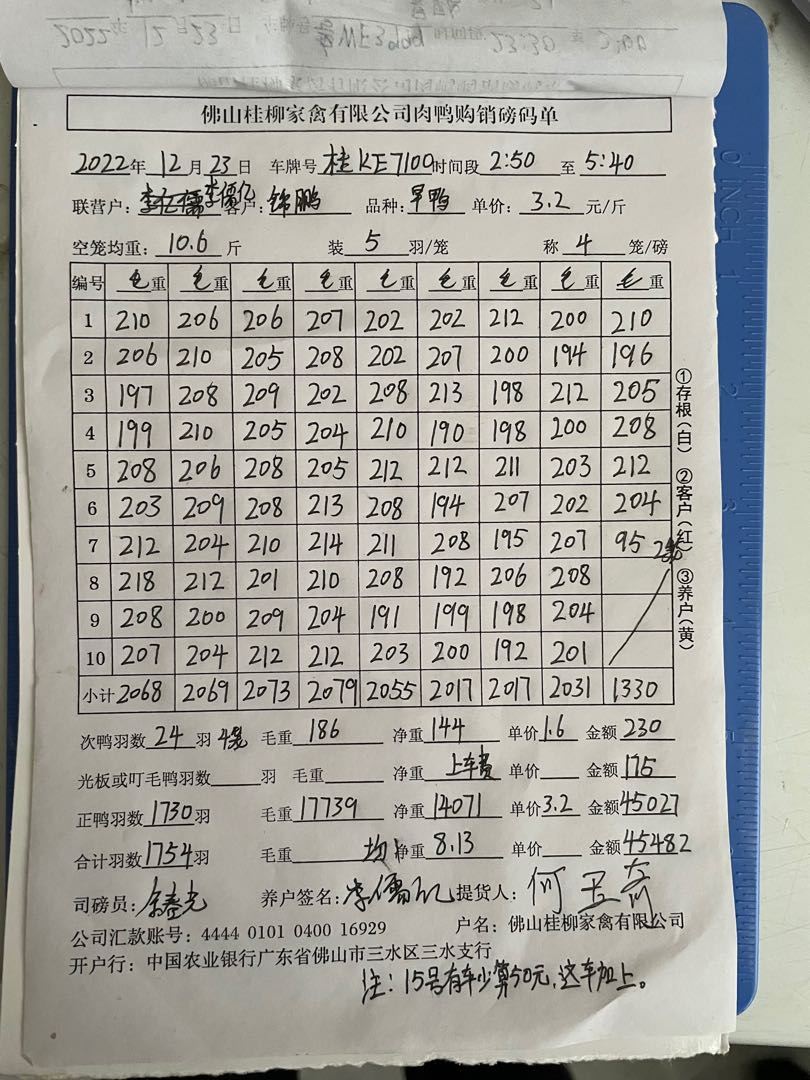 佛山桂柳家禽有限公司肉鸭购销磅码单
2022年 12月 23日 车牌号 桂KE7100 时间段 2:50 至 5:40
联营户: 李儒亿 客户: 锦鹏 品种: 旱鸭 单价: 3.2 元/斤
空笼均重: 10.6 斤 装 5 羽/笼 称 4 笼/磅
编号 毛重 毛重 毛重 毛重 毛重 毛重 毛重 毛重 毛重
1 210 206 206 207 202 202 212 200 210
2 206 210 205 208 202 207 200 194 196
3 197 208 209 202 208 213 198 212 205
4 199 210 205 204 210 190 198 200 208
5 208 206 208 205 212 212 211 203 212
6 203 209 208 213 208 194 207 202 204
7 212 204 210 214 211 208 195 207 95 2笼
8 218 212 201 210 208 192 206 208
9 208 200 209 204 191 199 198 204
10 207 204 212 212 203 200 192 201
小计 2068 2069 2073 2079 2055 2017 2017 2031 1330
次鸭羽数 24 羽 4笼 毛重 186 净重 144 单价 1.6 金额 230
光板或叮毛鸭羽数 羽 毛重 净重 上车费 单价 金额 175
正鸭羽数 1730 羽 毛重 17739 净重 14071 单价 3.2 金额 45027
合计羽数 1754 羽 毛重 均 净重 8.13 单价 金额 45482
司磅员: 养户签名: 提货人:
公司汇款账号: 4444 0101 0400 16929 户名: 佛山桂柳家禽有限公司
开户行: 中国农业银行广东省佛山市三水区三水支行
注: 15号有车少算50元,这车加上。
①存根(白) ②客户(红) ③养户(黄)